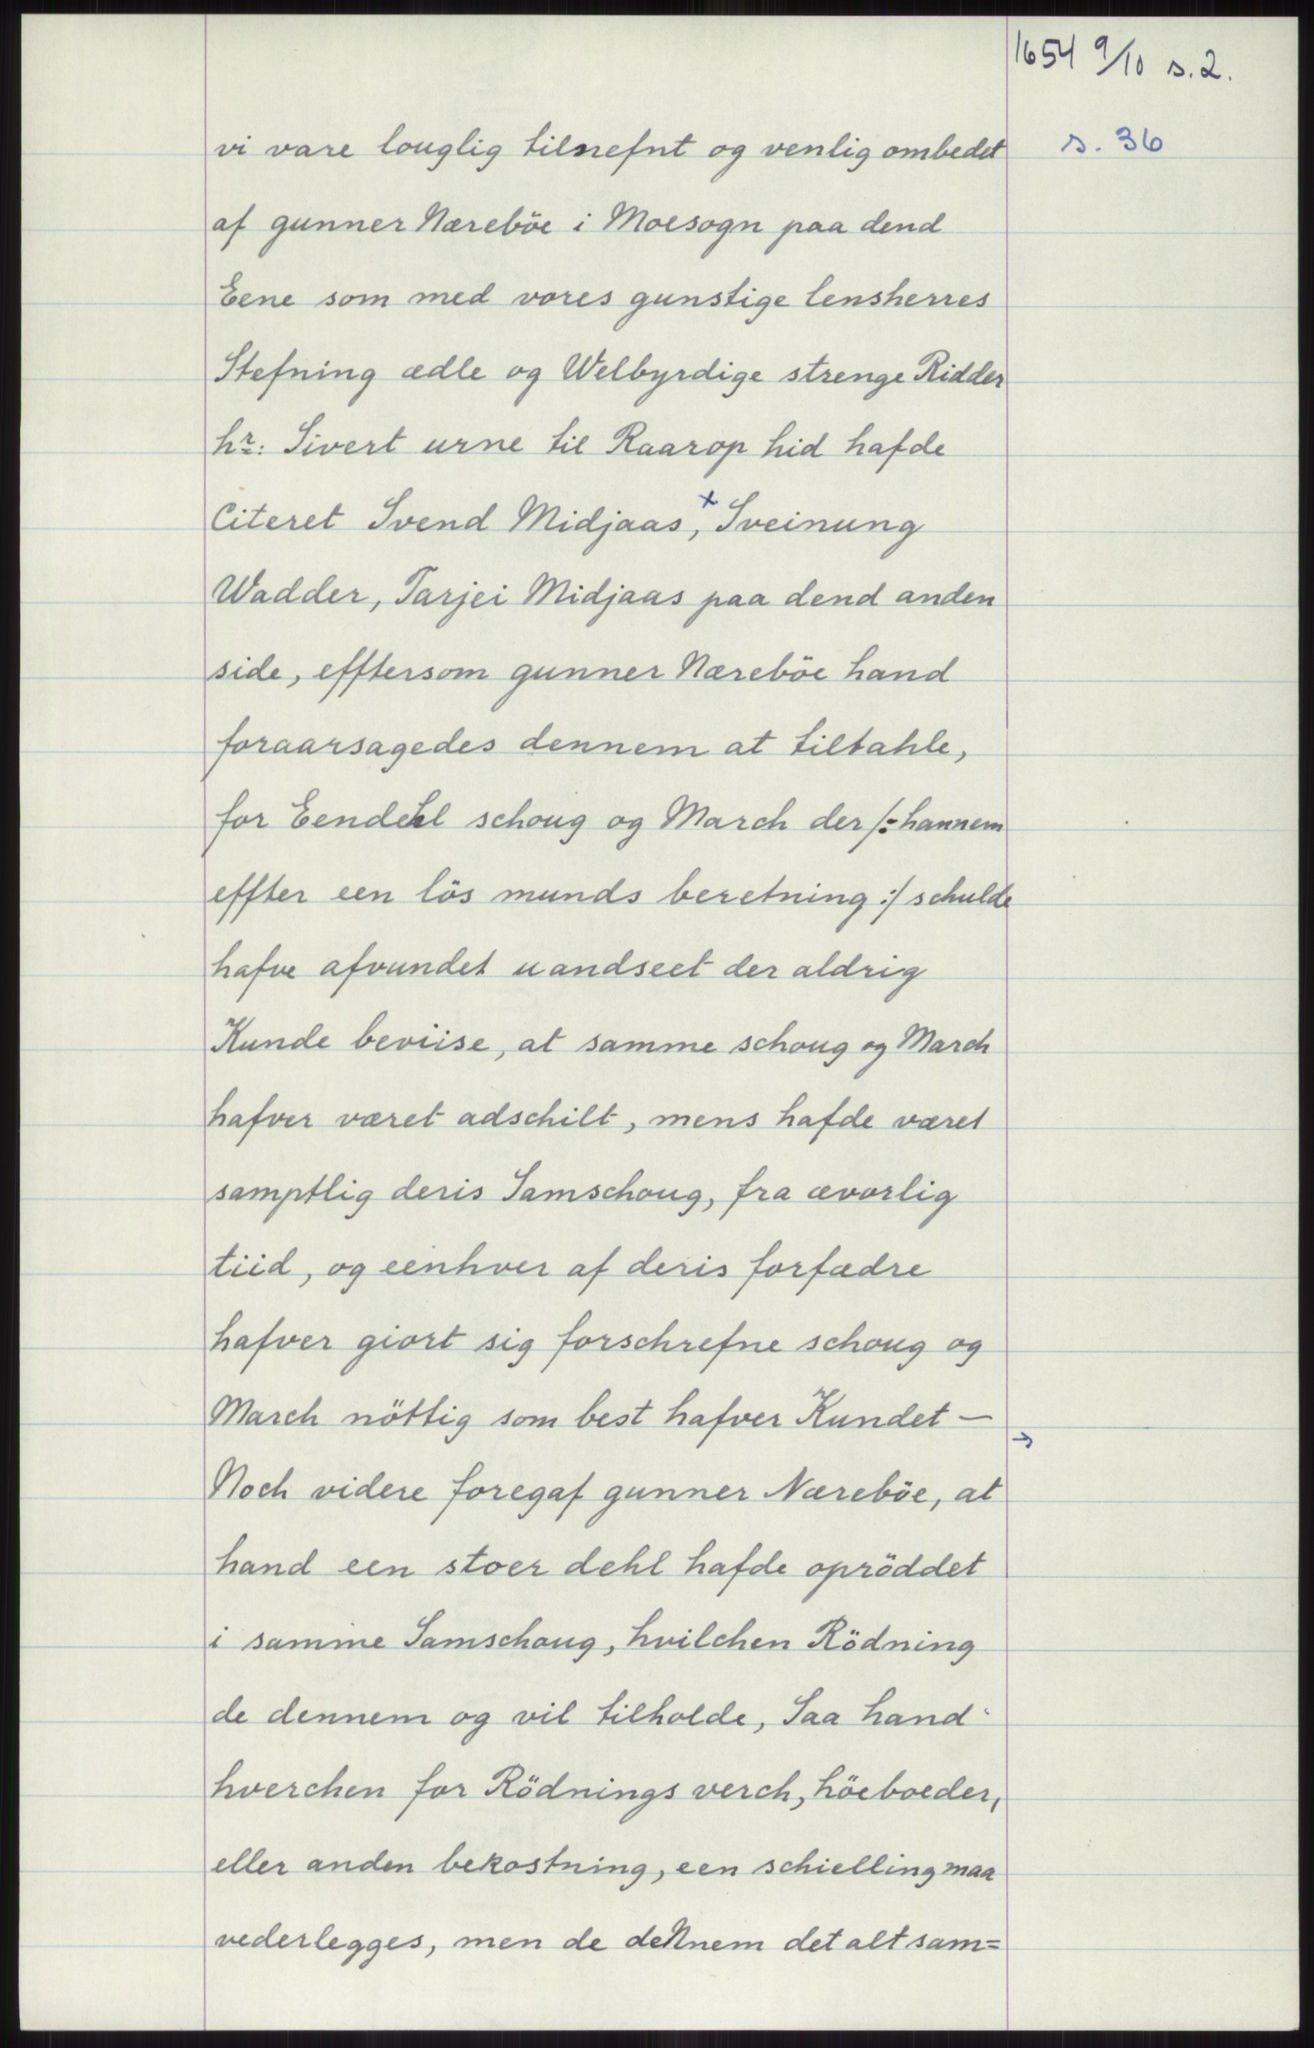 1654 9/10 s. 2.
s. 36
vi vare louglig tilnefnt og venlig ombedet
af gunner Næreböe i Moesogn paa dend
Eene som med vores gunstige lensherres
Stefning ædle og Welbyrdige strenge Ridder
hr: Sivert urne til Raarop hid hafde
Citeret Svend Midjaas,x Sveinung
Wadder, Tarjei Midjaas paa dend anden
side, efftersom gunner Næreböe hand
foraarsagedes dennem at tiltahle,
for Eendehl schoug og March der /: hannem
effter een lös munds beretning :/ schulde
hafve afvundet uandseet der aldrig
Kunde beviise, at samme schoug og March
hafver været adschilt, mens hafde været
samptlig deris Samschoug, fra ævarlig
tiid, og eenhver af deris forfædre
hafver giort sig forschrefne schoug og
March nöttig som best hafver Kundet —
Noch videre foregaf gunner Næreböe, at
hand een stoer dehl hafde opröddet
i samme Samschoug, hvilchen Rödning
de dennem og vil tilholde, Saa hand
hverchen for Rödnings verch, höeboeder,
eller anden bekostning, een schielling maa
vederlegges, men de dennem det alt sam=